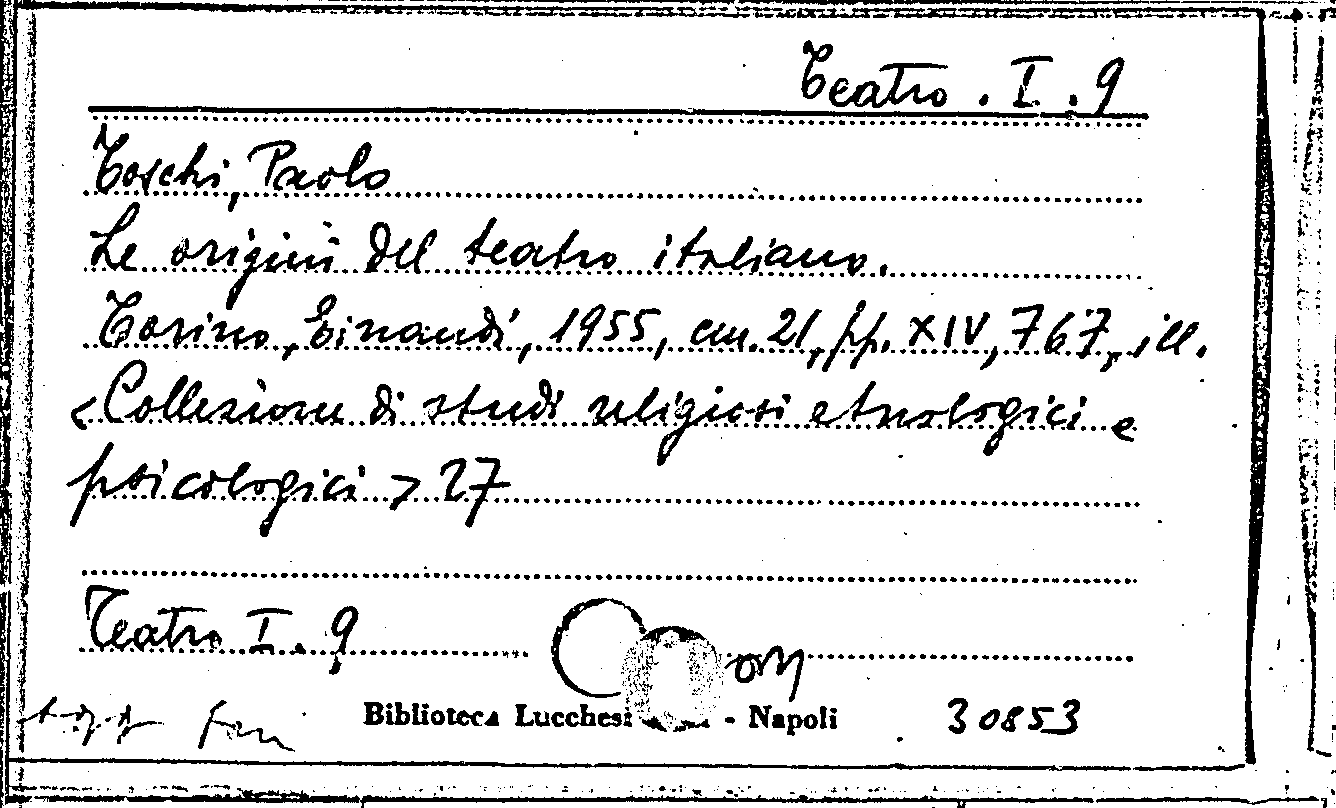 Teatro . I . 9
Toschi, Paolo
Le origini del teatro italiano.
Torino, Einaudi, 1955, cm. 21, pp. XIV, 767, ill.
<Collezione di studi religiosi etnologici e
psicologici > 27
Teatro I . 9
Biblioteca - Napoli
30853